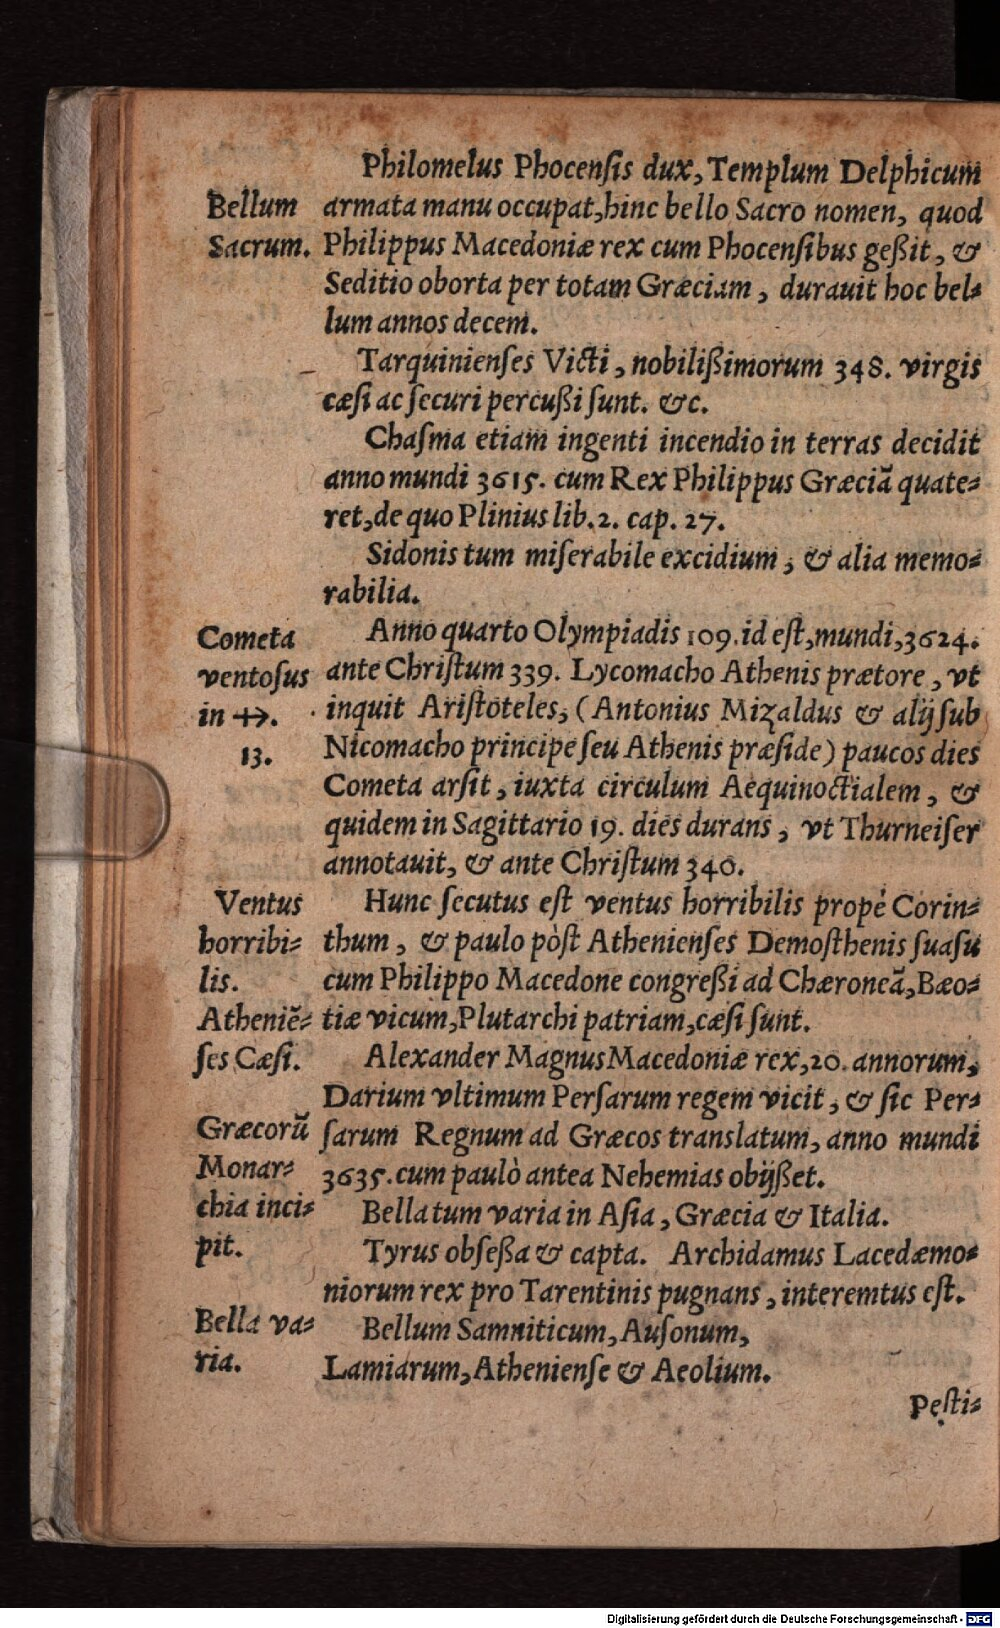 Philomelus Phocensis dux, Templum Delphicum
Bellum armata manu occupat, hinc bello Sacro nomen, quod
Sacrum. Philippus Macedoniæ rex cum Phocensibus geßit, &
Seditio oborta per totam Græciam, durauit hoc bel⸗
lum annos decem.
Tarquinienses Victi, nobilißimorum 348. virgis
cæsi ac securi percußi sunt. &c.
Chasma etiam ingenti incendio in terras decidit
anno mundi 3615. cum Rex Philippus Græciã quate⸗
ret, de quo Plinius lib. 2. cap. 27.
Sidonis tum miserabile excidium, & alia memo⸗
rabilia.
Cometa Anno quarto Olympiadis 109. id est, mundi, 3624.
ventosus ante Christum 339. Lycomacho Athenis prætore, vt
in ♐. inquit Aristoteles, (Antonius Mizaldus & alij sub
13. Nicomacho principe seu Athenis præside) paucos dies
Cometa arsit, iuxta circulum Aequinoctialem, &
quidem in Sagittario 19. dies durans, vt Thurneiser
annotauit, & ante Christum 340.
Ventus Hunc secutus est ventus horribilis propè Corin⸗
horribi⸗ thum, & paulo pòst Athenienses Demosthenis suasu
lis. cum Philippo Macedone congreßi ad Chæroneã, Bæo⸗
Atheniẽ⸗ tiæ vicum, Plutarchi patriam, cæsi sunt.
ses Cæsi. Alexander Magnus Macedoniæ rex, 20. annorum,
Darium vltimum Persarum regem vicit, & sic Per⸗
Græcorũ sarum Regnum ad Græcos translatum, anno mundi
Monar⸗ 3635. cum paulò antea Nehemias obijßet.
chia inci⸗ Bella tum varia in Asia, Græcia & Italia.
pit. Tyrus obseßa & capta. Archidamus Lacedæmo⸗
niorum rex pro Tarentinis pugnans, interemtus est.
Bella va⸗ Bellum Samniticum, Ausonum,
ria. Lamiarum, Atheniense & Aeolium.
Pesti⸗
Digitalisierung gefördert durch die Deutsche Forschungsgemeinschaft - DFG